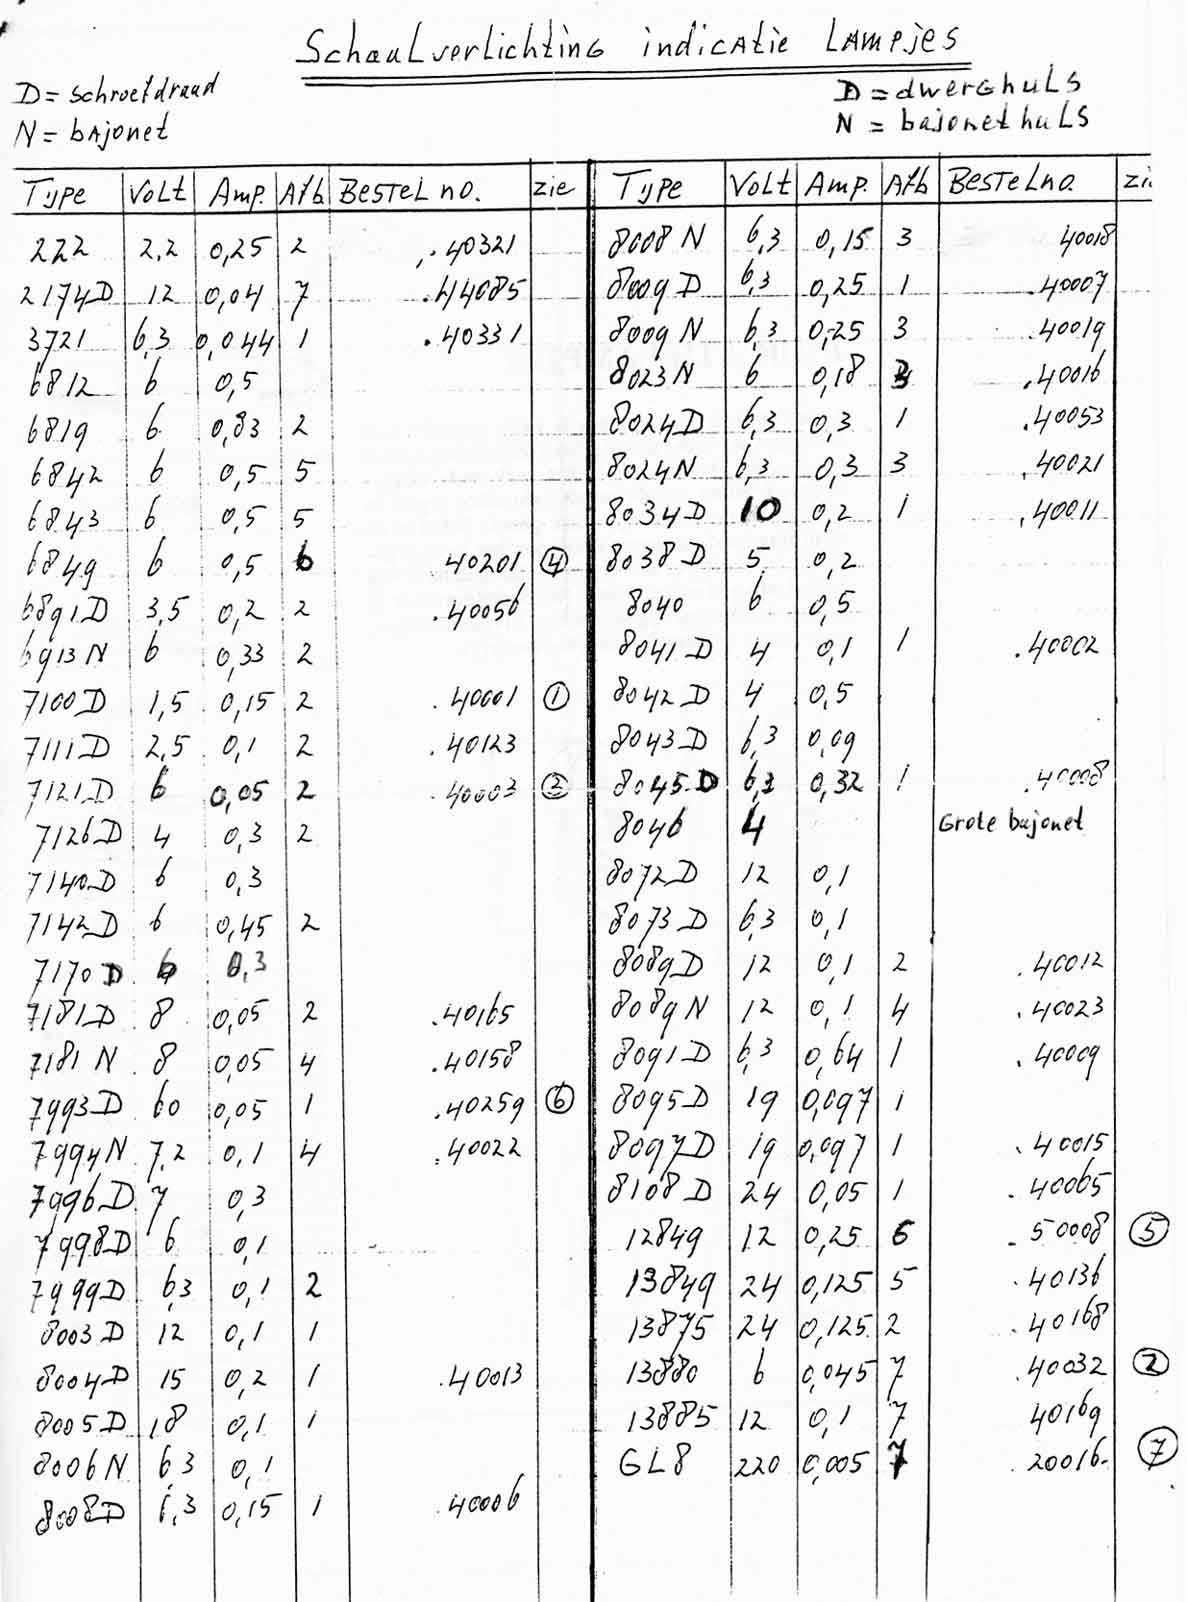 Schaalverlichting indicatie Lampjes
D = schroefdraad
N = bajonet
D = dwerghuls
N = bajonethuls
Type Volt Amp. Afb Bestel no. zie
222 2,2 0,25 2 .40321
2174D 12 0,04 7 .44085
3721 6,3 0,044 1 .40331
6812 6 0,5
6819 6 0,83 2
6842 6 0,5 5
6843 6 0,5 5
6849 6 0,5 6 40201 4
6891D 3,5 0,2 2 .40056
6913N 6 0,33 2
7100D 1,5 0,15 2 .40001 1
7111D 2,5 0,1 2 .40123
7121D 6 0,05 2 .40003
7126D 4 0,3 2
7140D 6 0,3
7142D 6 0,45 2
7170D 6 0,3
7181D 8 0,05 2 .40165
7181N 8 0,05 4 .40158
7993D 60 0,05 1 .40259 6
7994N 7,2 0,1 4 .40022
7996D 7 0,3
7998D 6 0,1
7999D 6,3 0,1 2
8003D 12 0,1 1
8004D 15 0,2 1 .40013
8005D 18 0,1 1
8006N 6,3 0,1
8008D 6,3 0,15 1 .40006
Type Volt Amp. Afb Bestel no.
8008N 6,3 0,15 3 40018
8009D 6,3 0,25 1 .40007
8009N 6,3 0,25 3 .40019
8023N 6 0,18 3 .40016
8024D 6,3 0,3 1 .40053
8024N 6,3 0,3 3 .40021
8034D 10 0,2 1 .40011
8038D 5 0,2
8040 6 0,5
8041D 4 0,1 1 .40002
8042D 4 0,5
8043D 6,3 0,09
8045D 6,3 0,32 1 .40008
8046 4 Grote bajonet
8072D 12 0,1
8073D 6,3 0,1
8089D 12 0,1 2 .40012
8089N 12 0,1 4 .40023
8091D 6,3 0,64 1 .40009
8095D 19 0,097 1
8097D 19 0,097 1 .40015
8108D 24 0,05 1 .40065
12849 12 0,25 6 .50008 5
13849 24 0,125 5 .40136
13875 24 0,125 2 .40168
13880 6 0,045 7 .40032 2
13885 12 0,1 7 40169
GL8 220 0,005 7 .20016 7